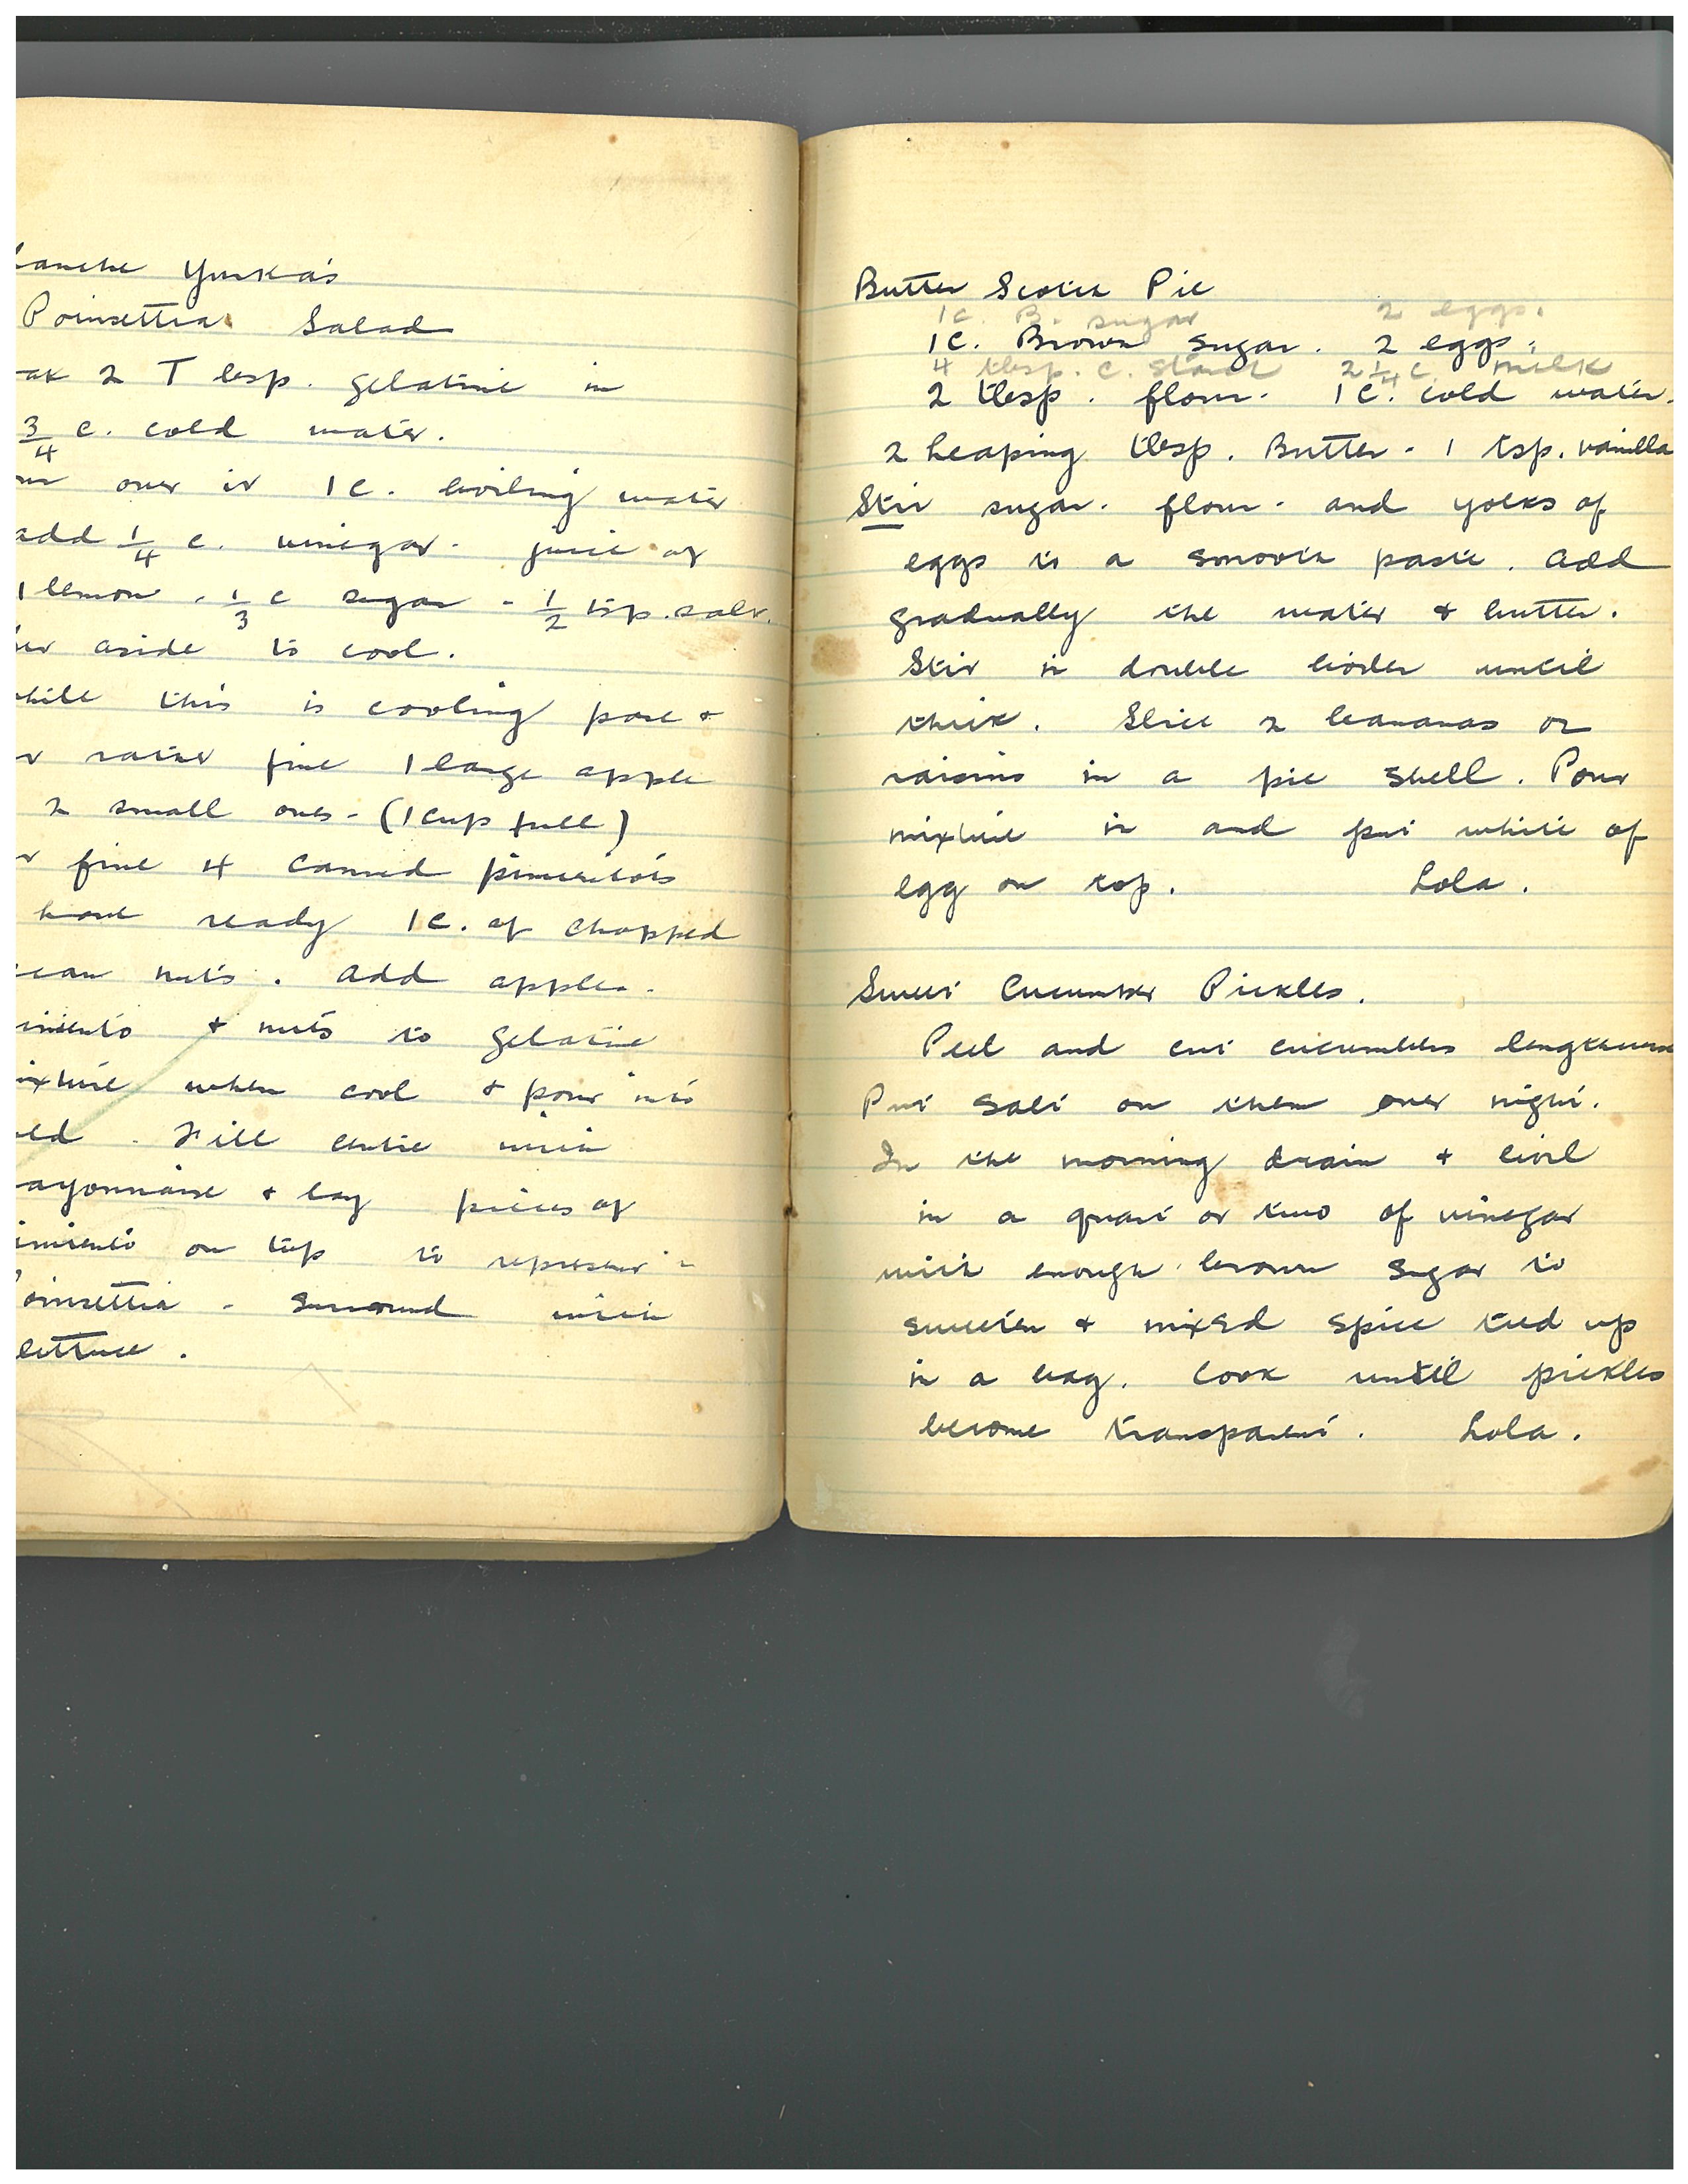 lanche Yurka's
Poinsettia Salad
ak 2 Tbsp. gelatine in
3/4 c. cold water.
ur over it 1 c. boiling water
add 1/4 c. vinegar - juice of
1 lemon - 1/3 c sugar - 1/2 tsp. salt.
aside to cool.
hile this is cooling pare +
rather fine 1 large apple
2 small ones - (1 cup full)
fine 4 canned pimentos
have ready 1 c. of chopped
ecan nuts. add apples -
imiento + nuts to gelatine
ixture when cool + pour into
ld - Fill centre with
ayonnaise + lay pieces of
imiento on top to represent a
oinsettia - surround with
lettuce.
Butter Scotch Pie
1c. B. sugar 2 eggs.
1 c. Brown sugar. 2 eggs.
4 tbsp. c. starch 2 1/4 c. milk
2 tbsp. flour. 1 c. cold water.
2 heaping tbsp. Butter - 1 tsp. vanilla
Stir sugar - flour - and yolks of
eggs to a smooth paste. add
gradually the water + butter.
Stir in double boiler until
thick. Slice 2 bananas or
raisins in a pie shell. Pour
mixture in and put white of
egg on top. Lola.
Sweet Cucumber Pickles.
Peel and cut cucumbers lengthwise
Put salt on them over night.
In the morning drain + boil
in a quart or two of vinegar
with enough brown sugar to
sweeten + mixed spice tied up
in a bag. Cook until pickles
become transparent. Lola.